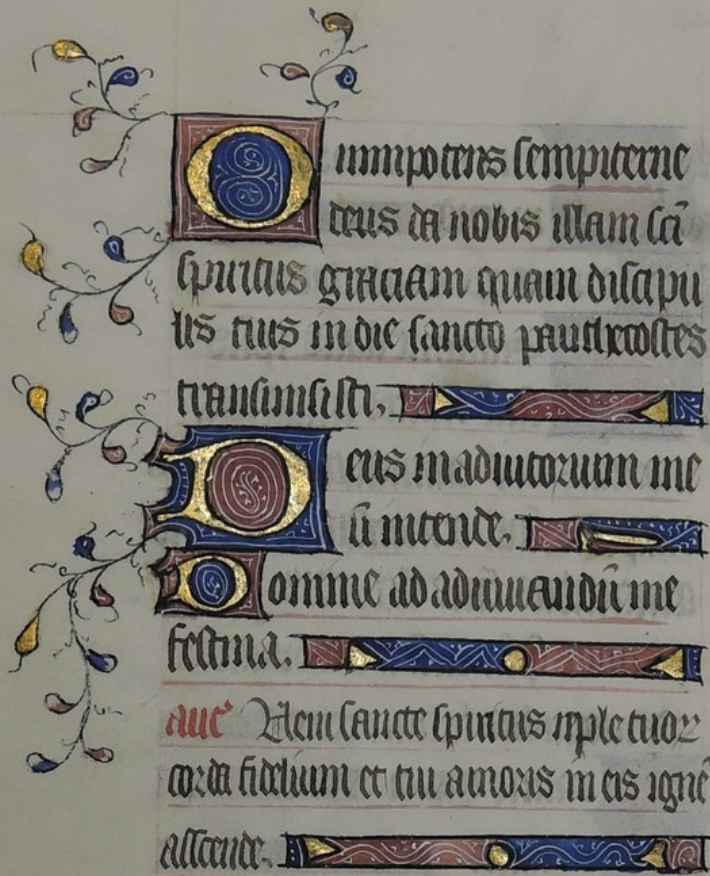 Omnipotens sempiterne
deus da nobis illam scī
spiritus graciam quam discipu
lis tuis in die sancto panthecostes
transmisisti.
Deus in adiutorium me
ū intende.
Domine ad adiuuandū me
festina.
Veni sancte spiritus reple tuoꝝ
corda fidelium et tui amoris in eis ignē
asscende.